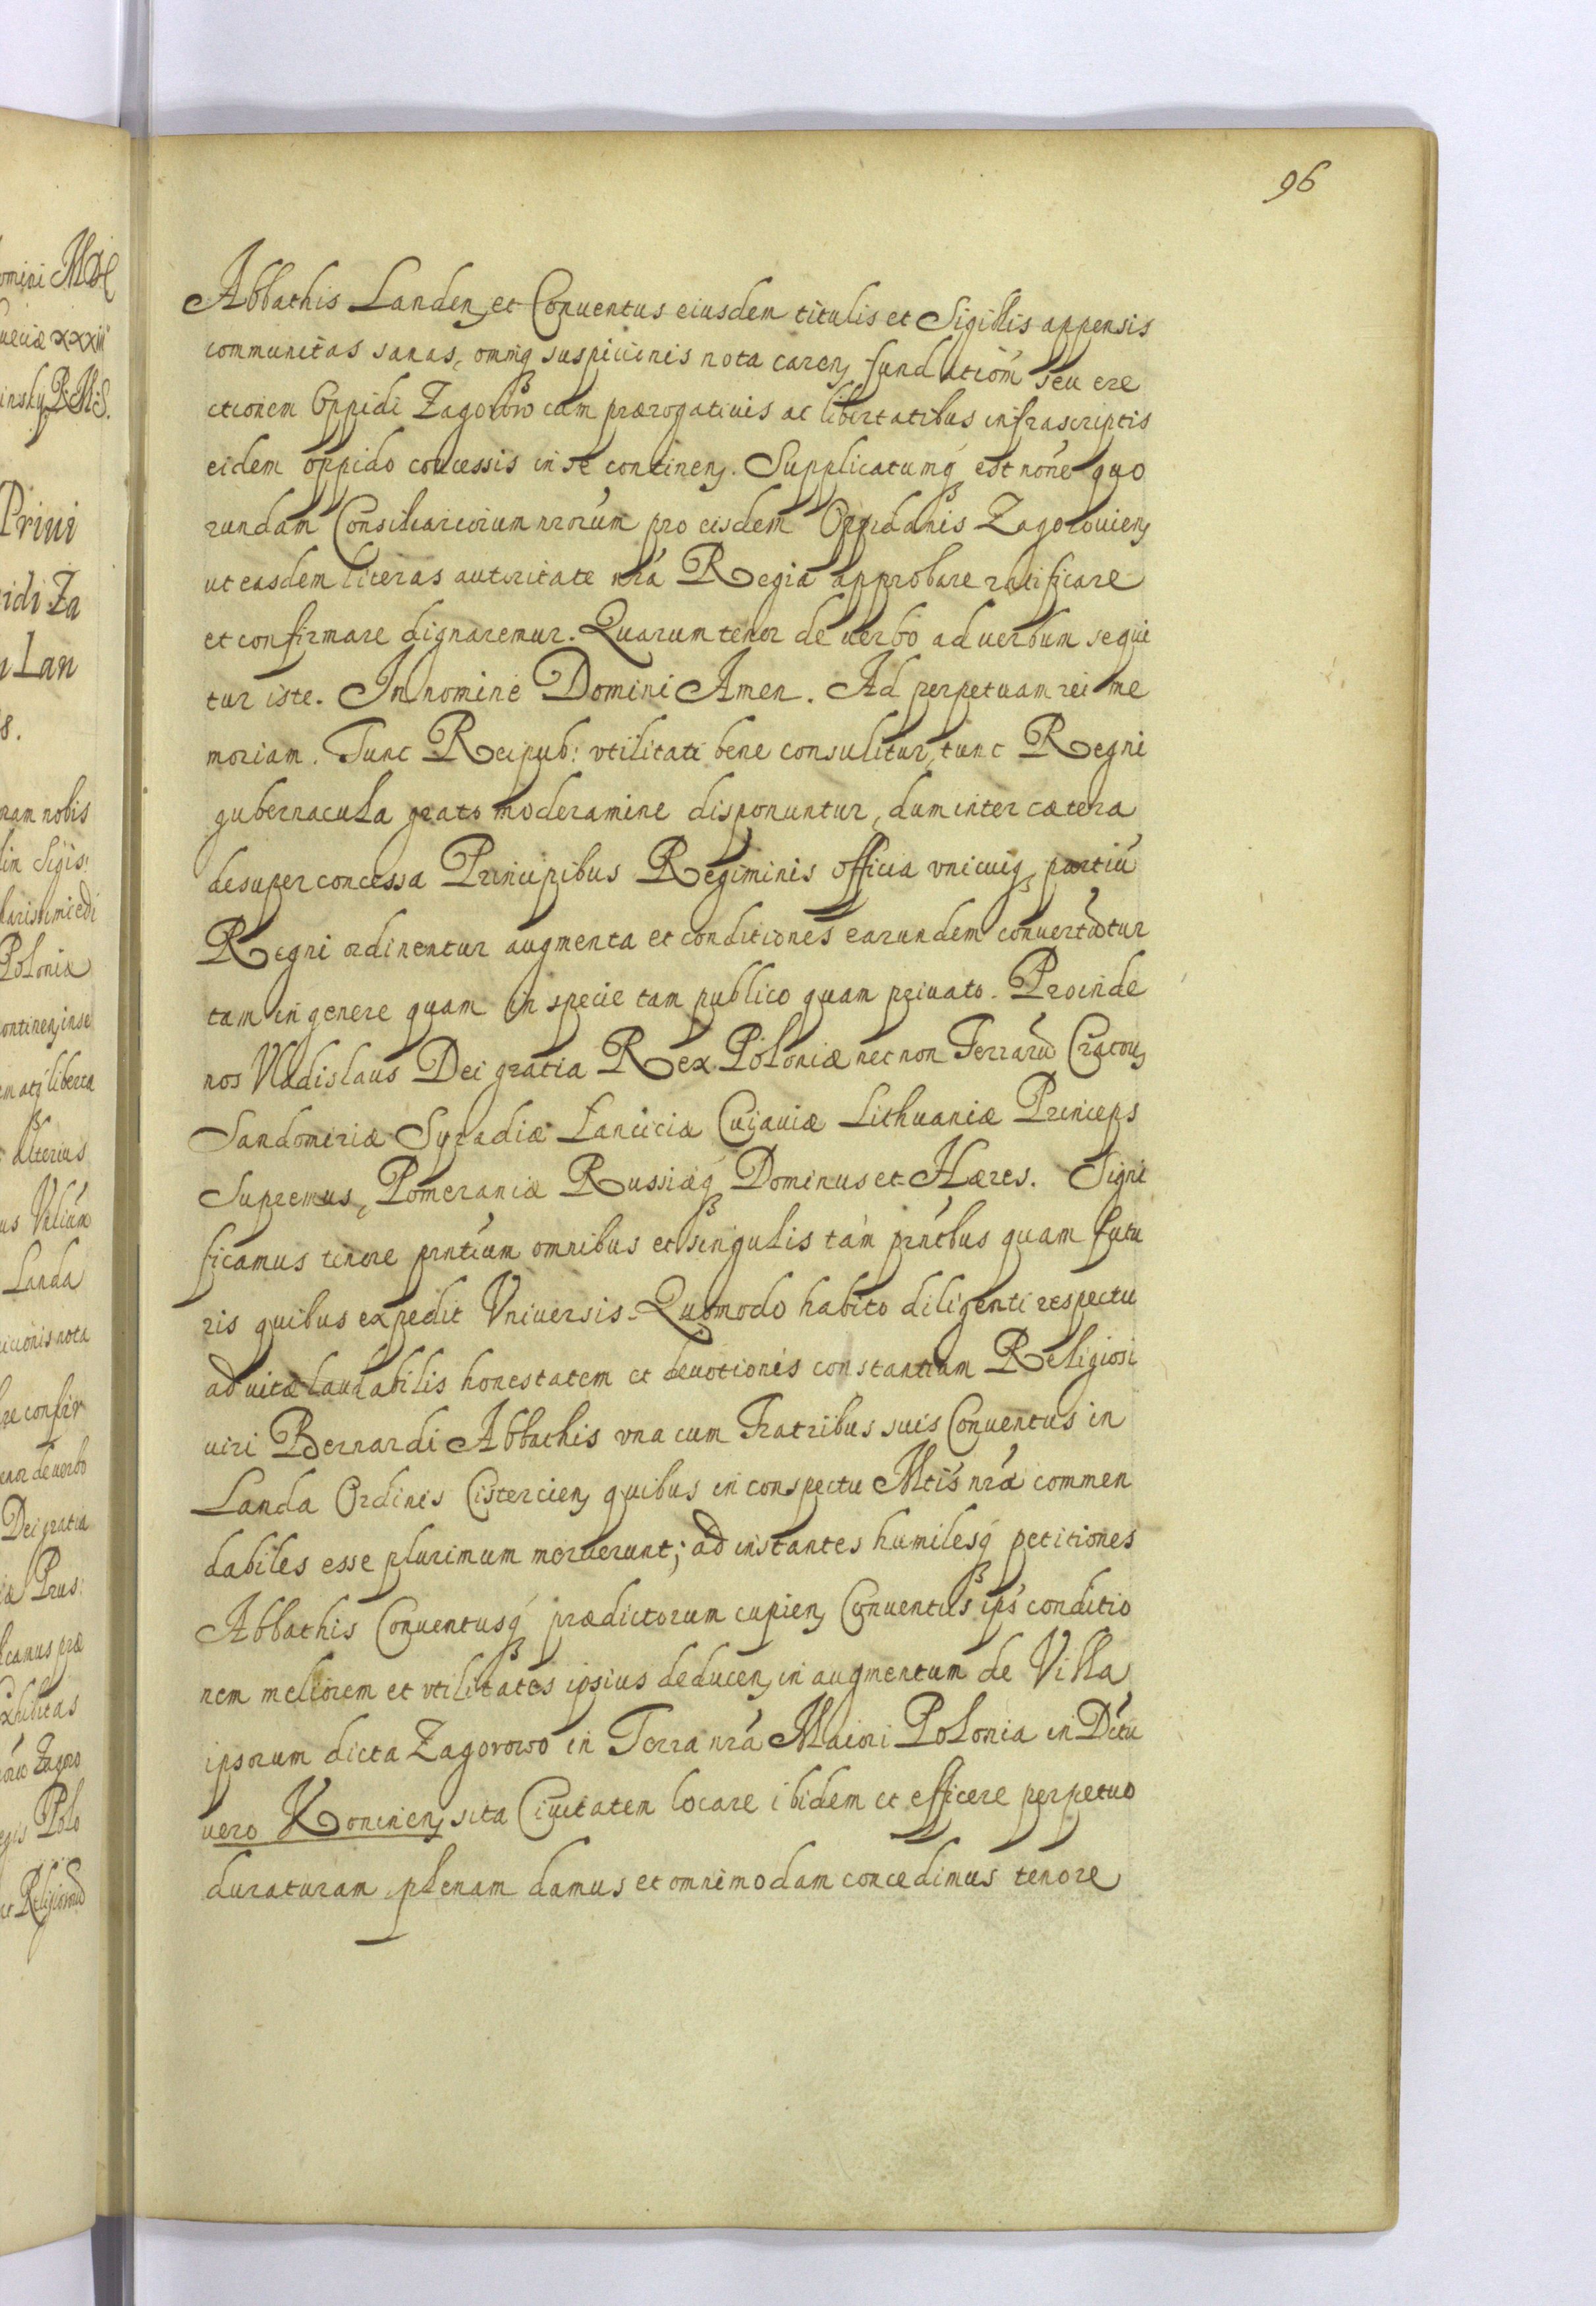 96
Abbathis Landen, et Conuentus eiusdem titulis et Sigillis appensis
communitas sanas, omniq suspicionis nota caren, fundatiom seu ere
ctionem Oppidi Zagorow cum prærogatiuis ac libertatibus infrascriptis
eidem oppido concessis in se continen,. Supplicatumq́ est noñe quo
rundam Consiliariorum nrorum pro eisdem Oppidanis Zagorouien,
ut easdem literas autoritate nrá Regia approbare ratificare
et confirmare dignaremur. Quarum tenor de uerbo ad uerbum sequi
tur iste. In nomine Domini Amen. Ad perpetuam rei me
moriam. Tunc Reipub: vtilitati bene consulitur, tunc Regni
gubernacula grato moderamine disponuntur, dum inter cætera
desuper concessa Principibus Regiminis officia vnicuiq, partiú
Regni ordinentur augmenta et conditiones earundem conuertátur
tam in genere quam in specie tam publico quam priuato. Proinde
nos Vladislaus Dei gratia Rex Poloniæ nec non Terrarú Cracou,
Sandomiriæ Syradiæ Lanciciæ Cuiauiæ Lithuaniæ Princeps
Supremus, Pomeraniæ Russiæq́ Dominus et Hæres. Signi
ficamus tenore prntium omnibus et singulis tám prńtbus quam futu
ris quibus expedit Vniuersis. Quomodo habito diligenti respectu
ad uitæ laudabilis honestatem et deuotionis constantiam Religiosi
uiri Bernardi Abbathis vna cum Fratribus suis Conuentus in
Landa Ordinis Cistercien, quibus in conspectu Mtis nrá commen
dabiles esse plurimum meruerunt; ad instantes humilesq́ petitiones
Abbathis Conuentusq́ prædictorum cupien, Conuentus ips conditio
nem meliorem et vtilitates ipsius deducen, in augmentum de Villa
ipsorum dicta Zagorowo in Terra nrá Maiori Polonia in Dctu
uero Koninien, sita Ciuitatem locare ibidem et efficere perpetuo
duraturam plenam damus et omnimodam concedimus tenore